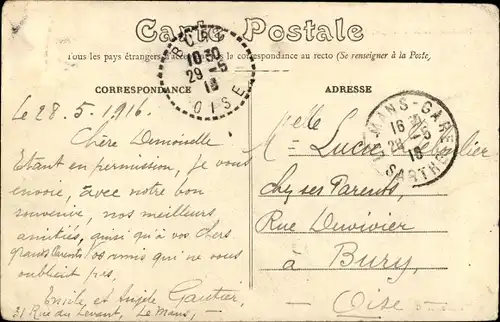 Carte Postale
Tous les pays étrangers la correspondance au recto (Se renseigner à la Poste)
CORRESPONDANCE
BURY
10 30
29 - 5
16
OISE
ADRESSE
LE MANS-GARE
16
28 - 5
16
SARTHE
Le 28.5.1916.
Chère Demoiselle
Etant en permission, je vous
envoie, avec notre bon
souvenir, nos meilleurs
amitiés, ainsi qu'à vos chers
grands Parents vos amis qui ne vous
oublient pas,
Emile et Angèle Gautier,
31 Rue du Levant, Le Mans,
Melle
Luce
Chez ses Parents,
Rue Duvivier
à Bury,
Oise